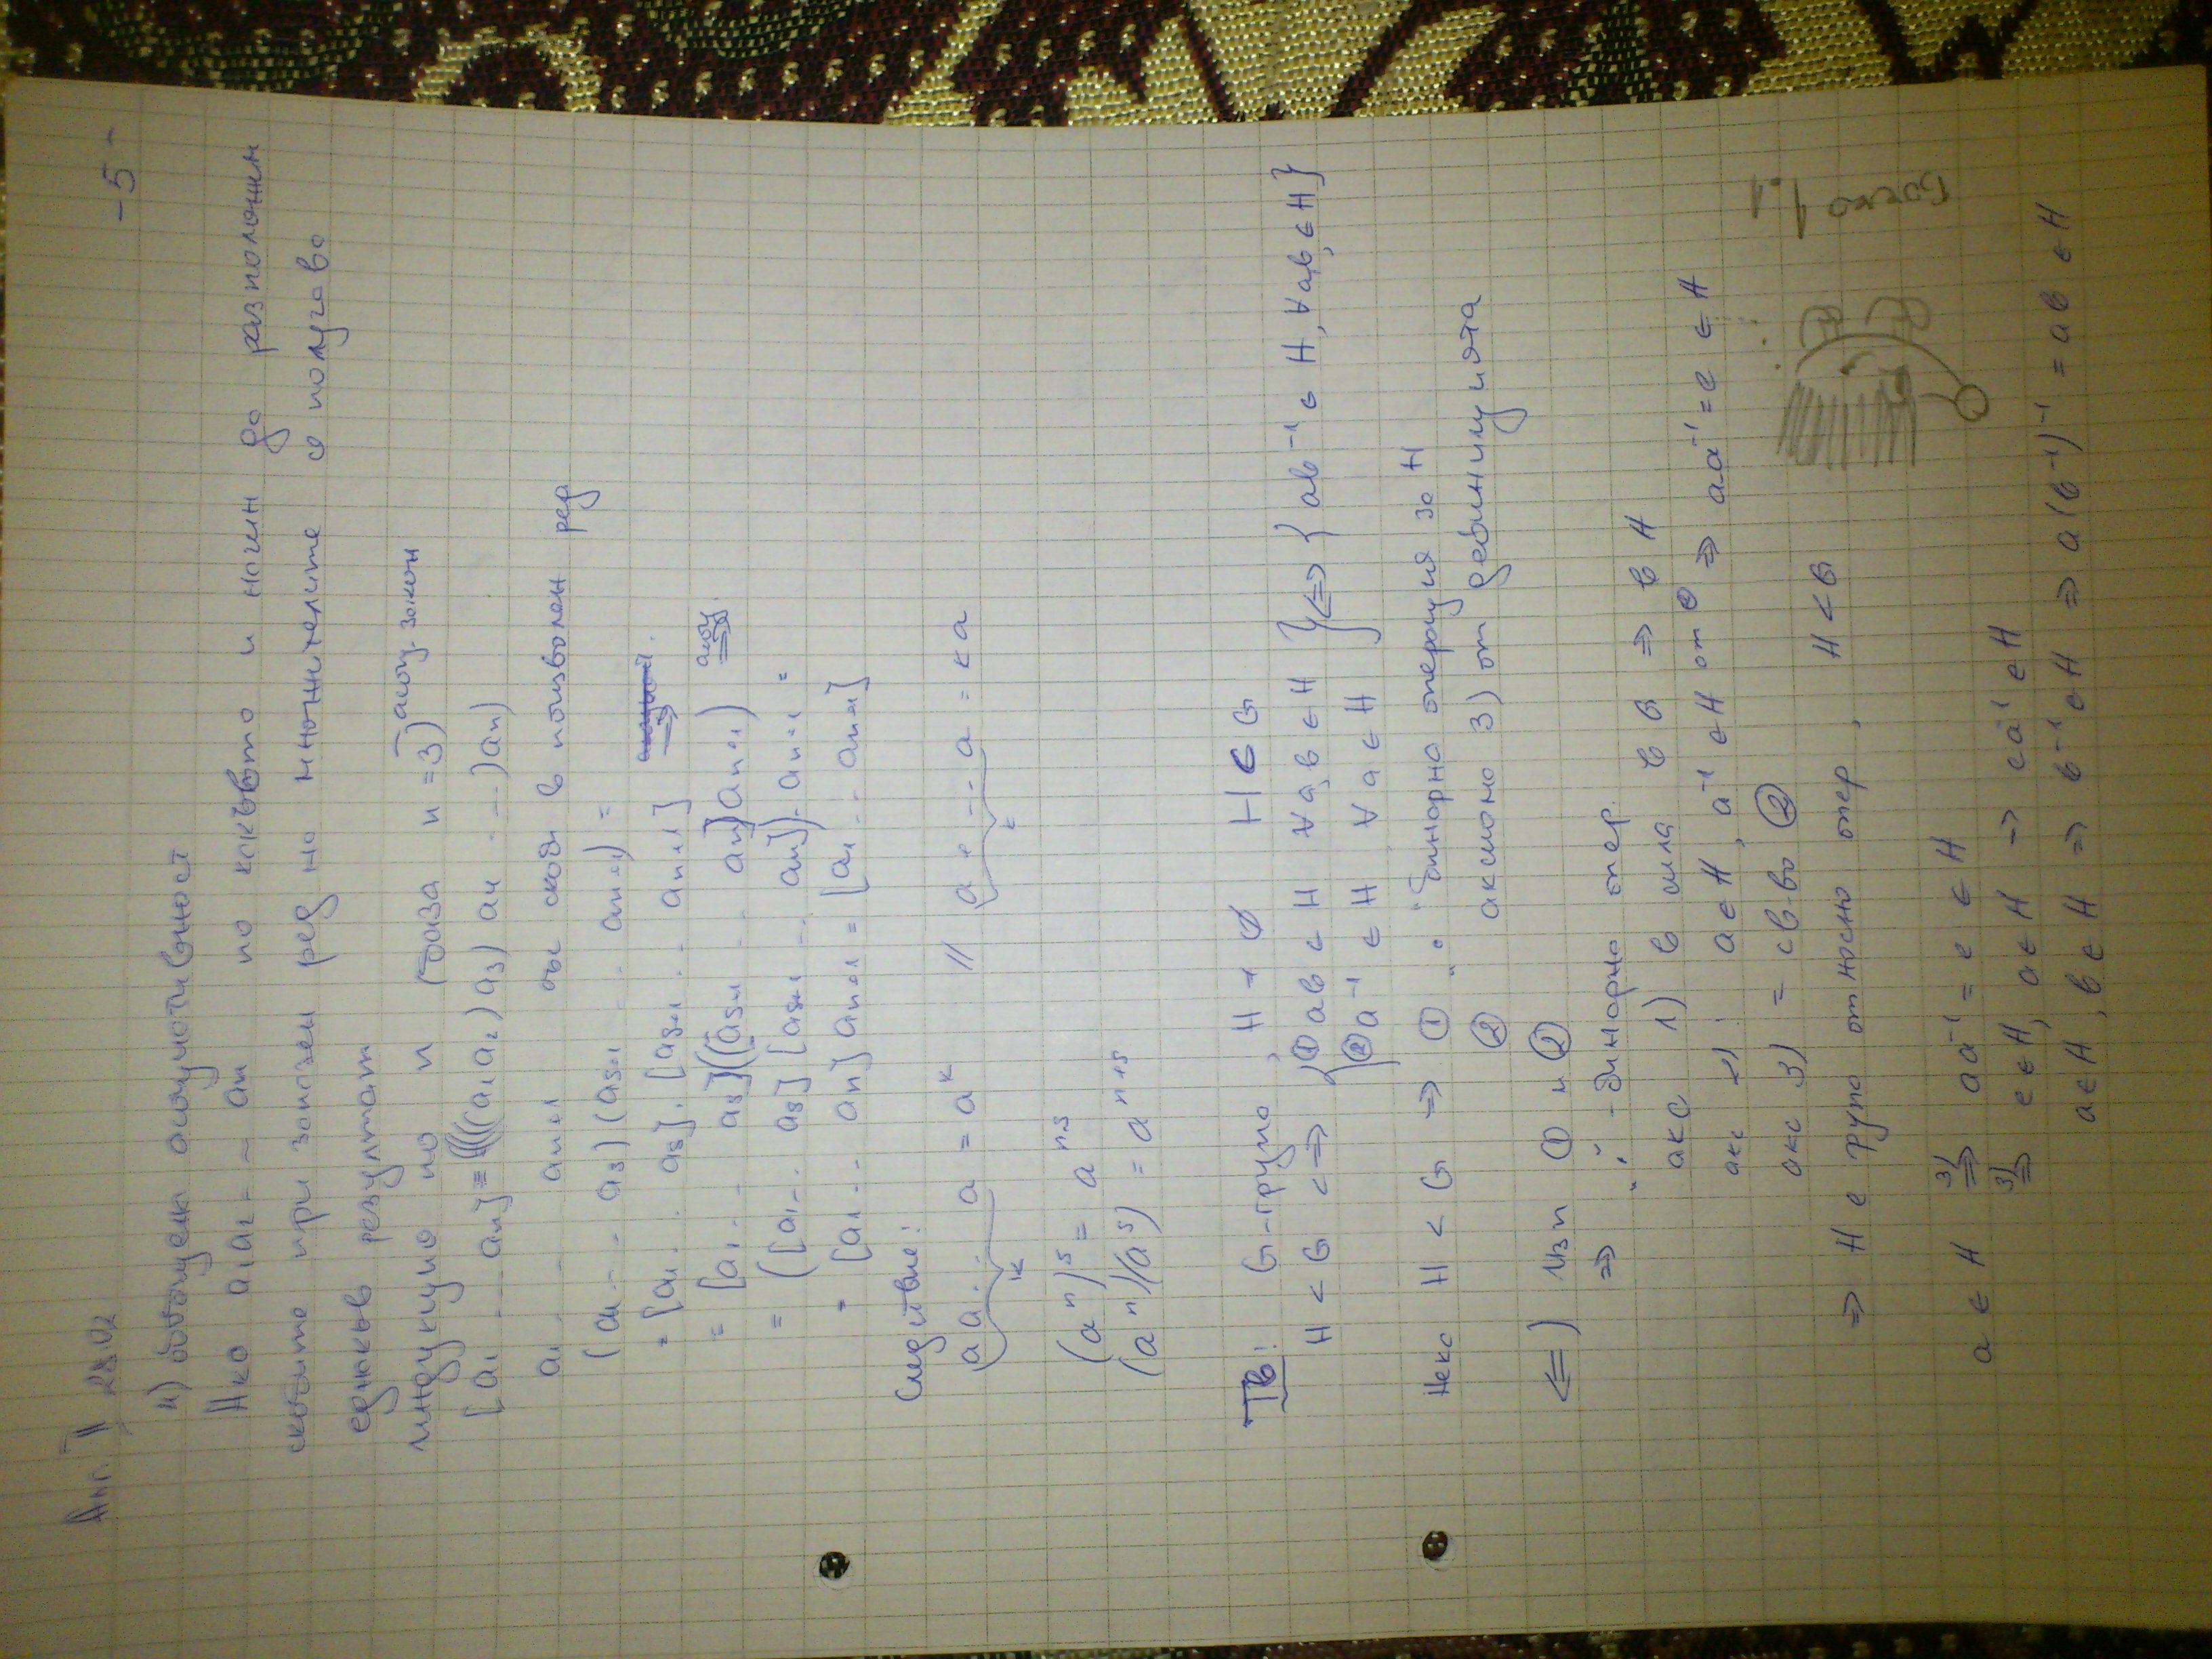 -5-
Алг. I 28.02
4) обобщена асоциативност
Ако a₁a₂ - - aₙ по какъвто и начин да разположим
скобите при запазен ред на множителите се получава
еднакъв резултат
индукция по n (база n=3) асоц. закон
[a₁ ... aₙ] = ((((a₁a₂)a₃)a₄ ...)aₙ)
a₁ . - aₙ₊₁ със скоби в произволен ред
(a₁ - - - aₛ)(aₛ₊₁ . . aₙ₊₁) =
= [a₁ . . aₛ].[aₛ₊₁ . . aₙ₊₁]
= [a₁ . . aₛ]([aₛ₊₁ . . aₙ]aₙ₊₁) асоц. =>
= ([a₁ . . aₛ][aₛ₊₁ . . aₙ]).aₙ₊₁ =
= [a₁ . . aₙ]aₙ₊₁ = [a₁ . . aₙ₊₁]
Следствие:
a a . . . a = aᵏ // a + . . a = ка
к к
(aⁿ)ˢ = aⁿˢ
(aⁿ)(aˢ) = aⁿ⁺ˢ
Тв: G-група, H ≠ ∅ H ⊂ G
H < G <=> { ① ab ∈ H ∀a,b ∈ H } <=> { ab⁻¹ ∈ H, ∀a,b ∈ H }
② a⁻¹ ∈ H, ∀a ∈ H
Нека H < G => ① "." бинарна операция за H
② аксиома 3) от дефиницията
<=) Изп ① и ②
=> "." - бинарна опер.
акс 1) в сила в G => в H
акс 2): a ∈ H, a⁻¹ ∈ H от ① => aa⁻¹ = e ∈ H
акс 3) = св-во ②
=> H е група относно опер, H < G
a ∈ H 3) => aa⁻¹ = e ∈ H
3) => e ∈ H, a ∈ H => ea⁻¹ ∈ H
a ∈ H, b ∈ H => b⁻¹ ∈ H => a(b⁻¹)⁻¹ = ab ∈ H